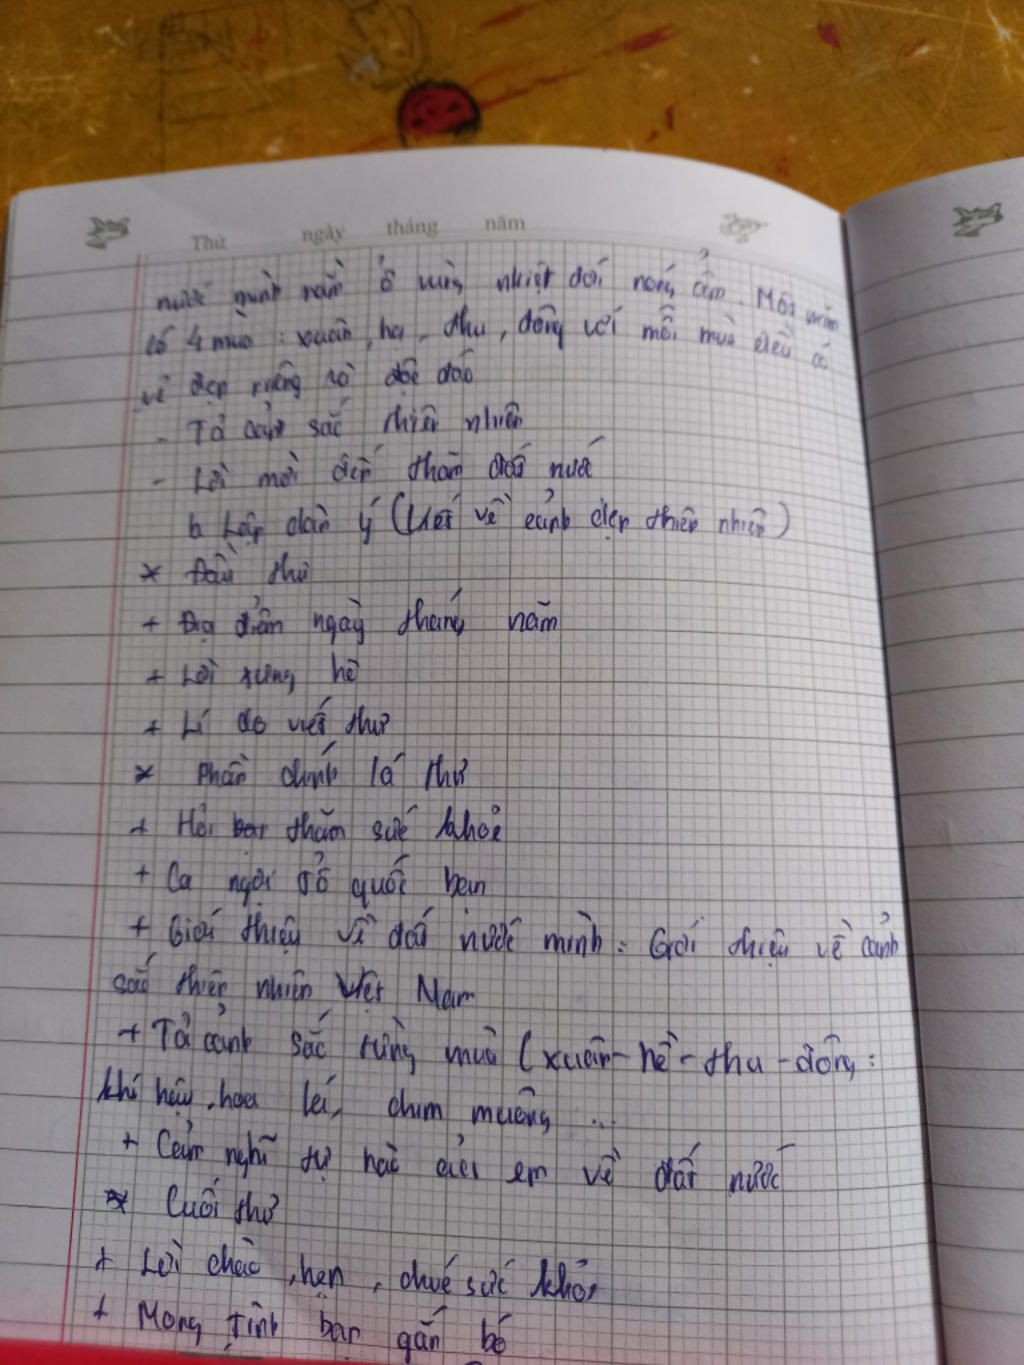 Thứ ngày tháng năm
nước mình nằm ở vùng nhiệt đới nóng ẩm. Một năm
có 4 mùa : xuân, hạ, thu, đông với mỗi mùa đều có
vẻ đẹp riêng và độc đáo
- Tả cảnh sắc thiên nhiên
- Lời mời đến thăm đất nước
b Lập dàn ý (Viết về cảnh đẹp thiên nhiên)
* Đầu thư
+ Địa điểm ngày tháng năm
+ Lời xưng hô
+ Lí do viết thư
* Phần chính lá thư
+ Hỏi thăm sức khỏe
+ Ca ngợi tổ quốc bạn
+ Giới thiệu về đất nước mình : Giới thiệu về cảnh
sắc thiên nhiên Việt Nam
+ Tả cảnh sắc từng mùa (xuân - hè - thu - đông :
khí hậu, hoa lá, chim muông ...
+ Cảm nghĩ tự hào của em về đất nước
* Cuối thư
+ Lời chào, hẹn, chúc sức khỏe
+ Mong tình bạn gắn bó